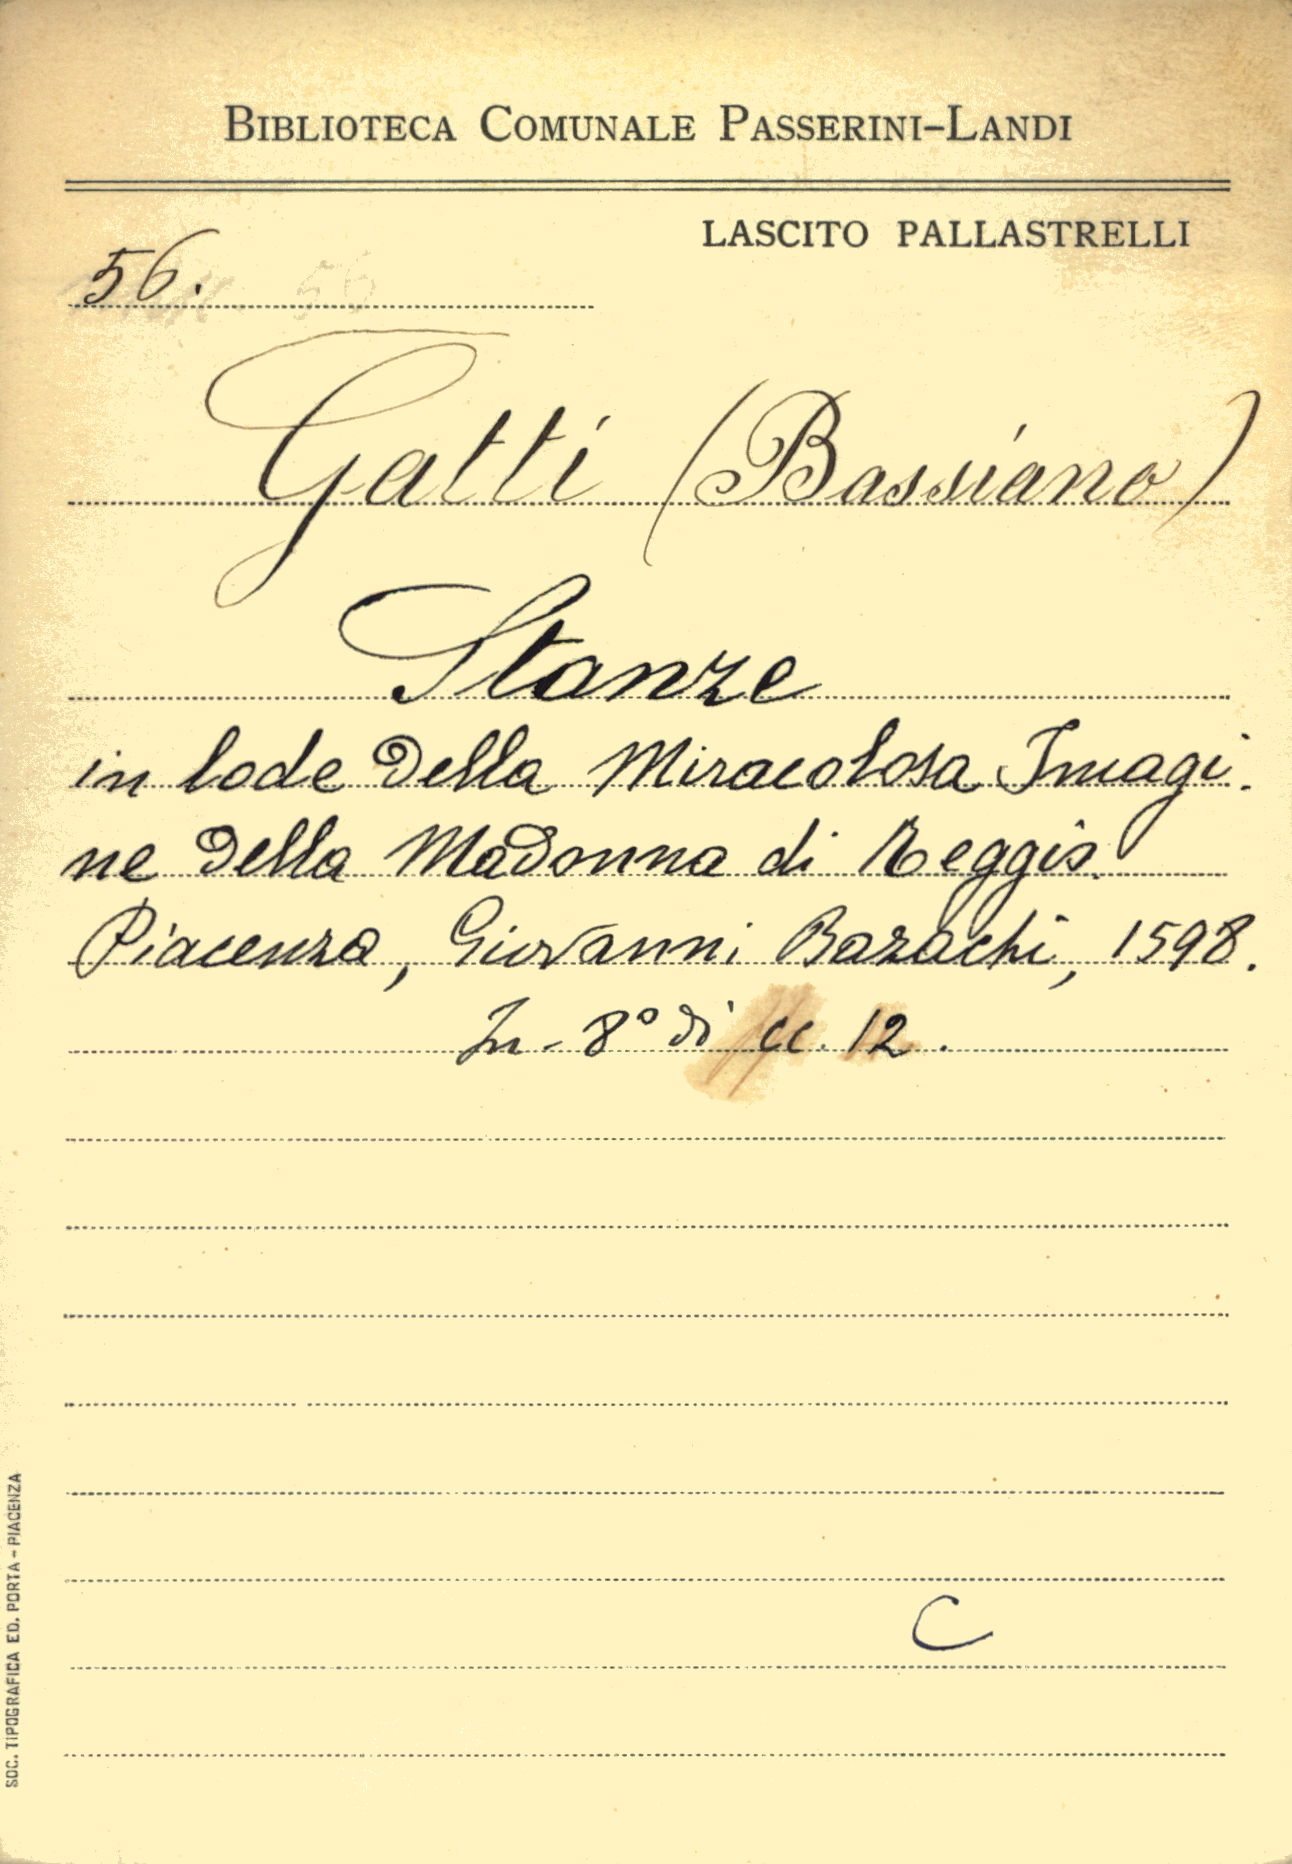 BIBLIOTECA COMUNALE PASSERINI-LANDI
LASCITO PALLASTRELLI
56.
Gatti (Bassiano)
Stanze
in lode della Miracolosa Imagi-
ne della Madonna di Reggio.
Piacenza, Giovanni Bazachi, 1598.
In-8° di cc. 12.
C
SOC. TIPOGRAFICA ED. PORTA - PIACENZA